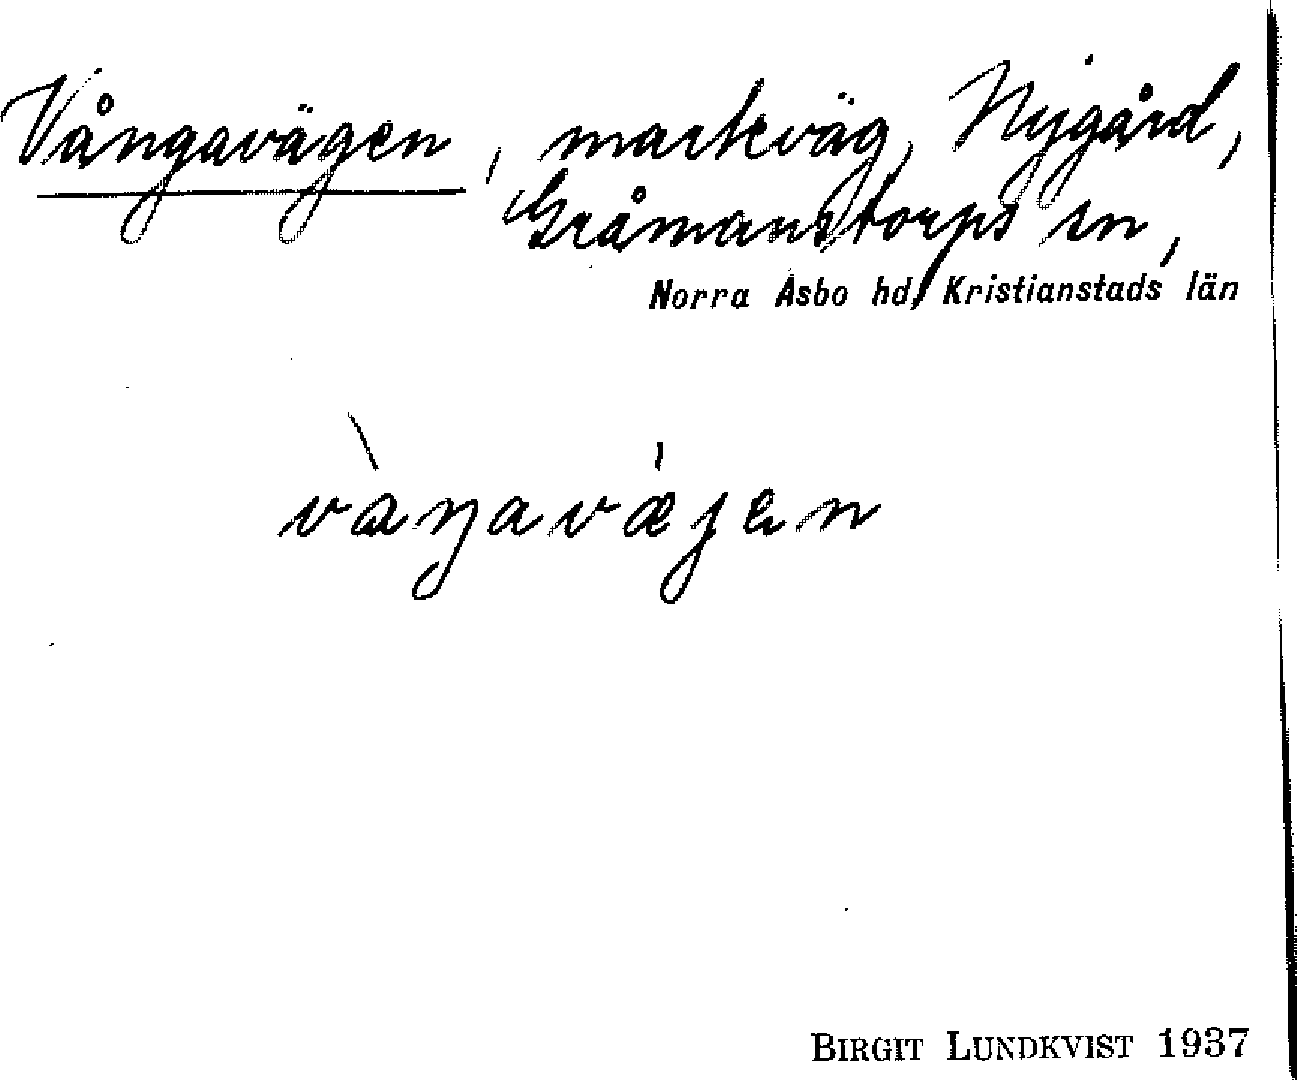 Vångavägen, markväg, Nygård,
Gråmanstorps sn,
Norra Åsbo hd, Kristianstads län
vàŋavǽjen
BIRGIT LUNDKVIST 1937